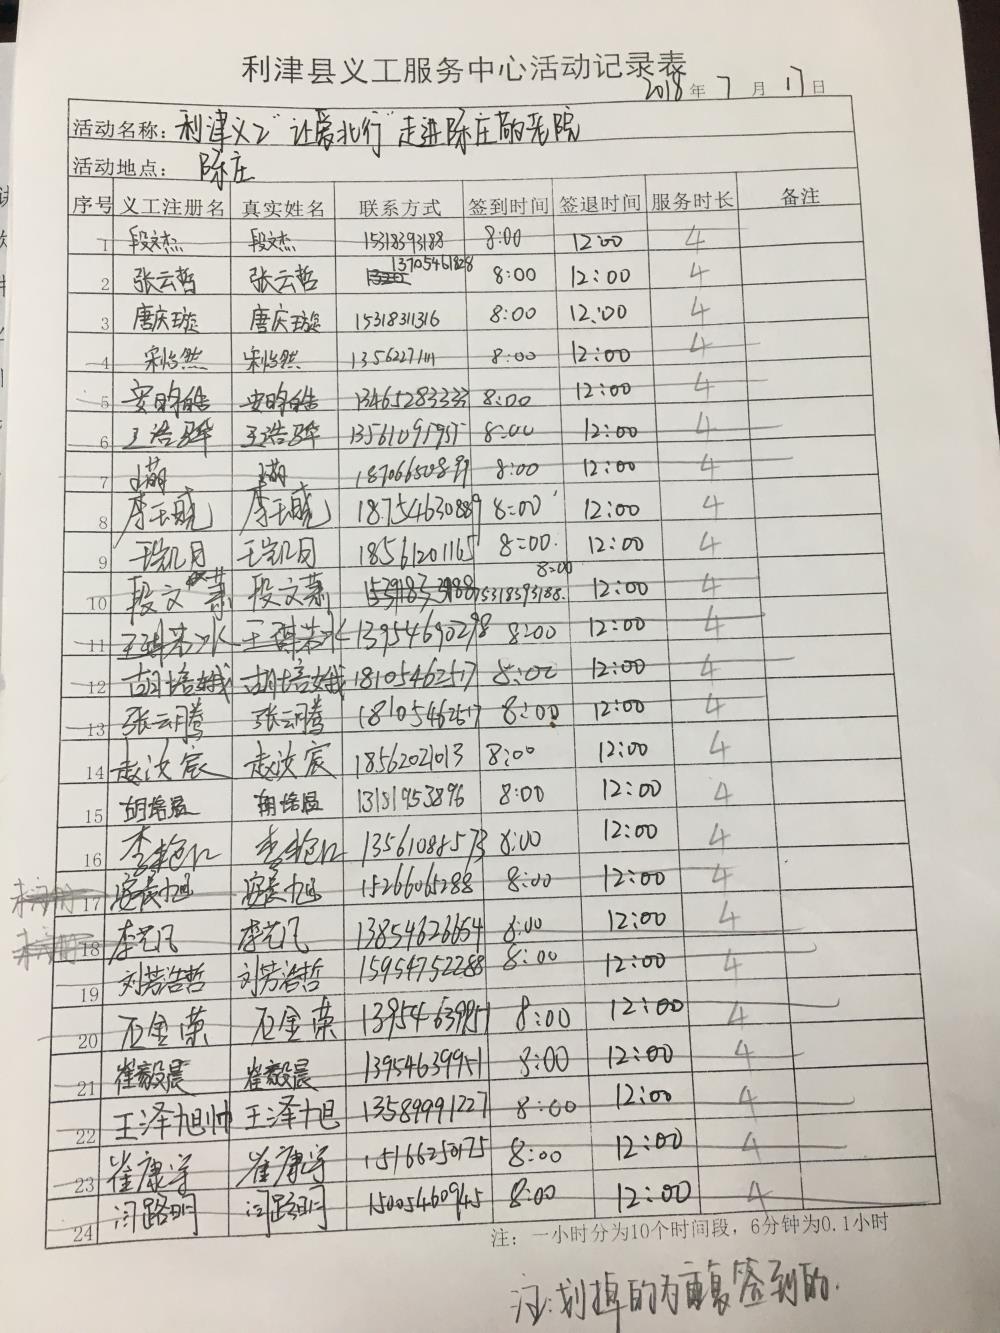 利津县义工服务中心活动记录表
2018年7月17日
活动名称：利津义工"让爱北行"走进陈庄敬老院
活动地点： 陈庄
序号 义工注册名 真实姓名 联系方式 签到时间 签退时间 服务时长 备注
1 段文杰 段文杰 15318393188 8:00 12:00 4
2 张云哲 张云哲 13705461828 8:00 12:00 4
3 唐庆璇 唐庆璇 15318311316 8:00 12:00 4
4 宋怡然 宋怡然 8:00 12:00 4
5 安昀皓 安昀皓 13465283333 8:00 12:00 4
6 王浩骅 王浩骅 8:00 12:00 4
7 8:00 12:00 4
8 李玉晓 李玉晓 18754630889 8:00 12:00 4
9 王凯月 王凯月 18561201165 8:00 12:00 4
10 段文萧 段文萧 15318393188 8:00 12:00 4
11 13954690298 8:00 12:00 4
12 胡培娥 胡培娥 18105462517 8:00 12:00 4
13 张云腾 张云腾 18105462517 8:00 12:00 4
14 赵汝宸 赵汝宸 18562021013 8:00 12:00 4
15 13181953896 8:00 12:00 4
16 李艳红 李艳红 13561088573 8:00 12:00 4
17 15266065288 8:00 12:00 4
18 李艺凡 李艺凡 13854626654 8:00 12:00 4
19 刘芳浩哲 刘芳浩哲 15954752288 8:00 12:00 4
20 石金荣 石金荣 13954639951 8:00 12:00 4
21 崔毅晨 崔毅晨 13954639951 8:00 12:00 4
22 王泽旭帅 王泽旭 13589991227 8:00 12:00 4
23 崔康宇 崔康宇 15166250175 8:00 12:00 4
24 闫路明 闫路明 15005460945 8:00 12:00 4
注：一小时分为10个时间段，6分钟为0.1小时
注:划掉的为重复签到的.